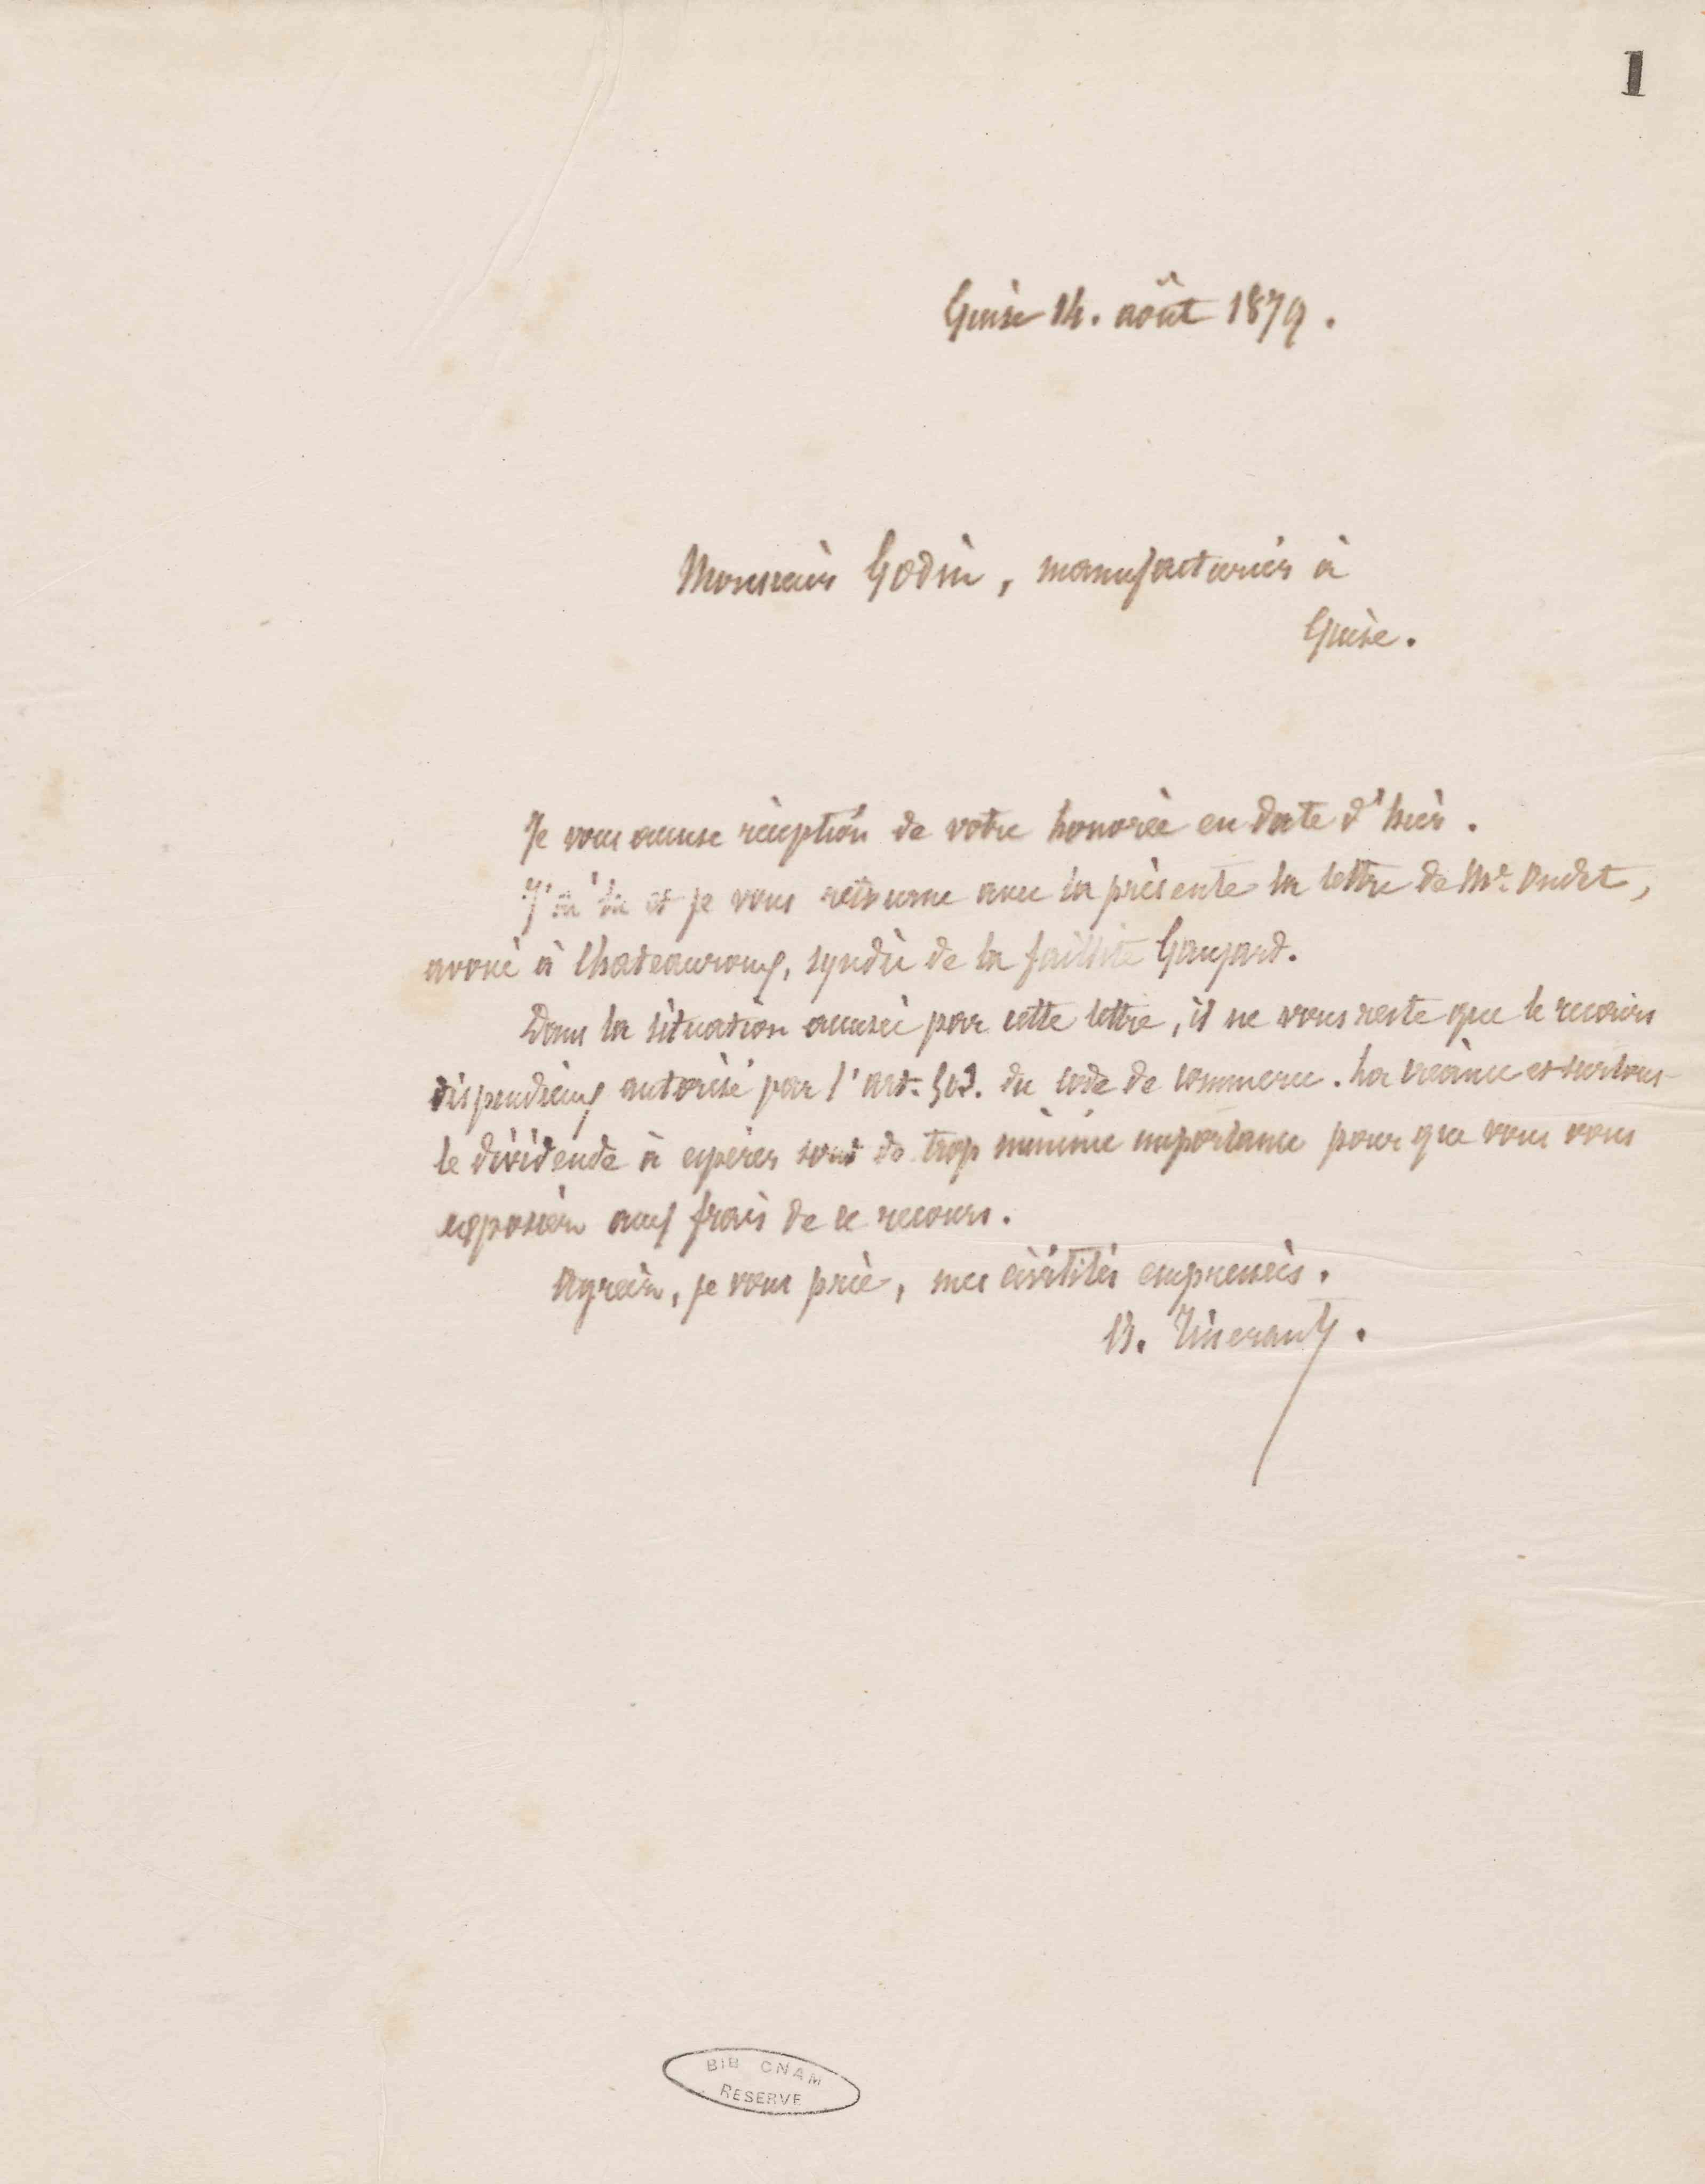 1
Guise 14. août 1879.
Monsieur Godin, manufacturier à
Guise.
Je vous accuse réception de votre honorée en date d'hier.
J'ai lu et je vous retourne avec la présente la lettre de Me Oudet,
avoué à Chateauroux, syndic de la faillite Gaujard.
Dans la situation accusée par cette lettre, il ne vous reste que le recours
dispendieux autorisé par l'art. 503. du code de commerce. La créance et surtout
le dividende à espérer sont de trop minime importance pour que vous vous
exposiez aux frais de ce recours.
Agréez, je vous prie, mes civilités empressées.
BIB CNAM
RESERVE